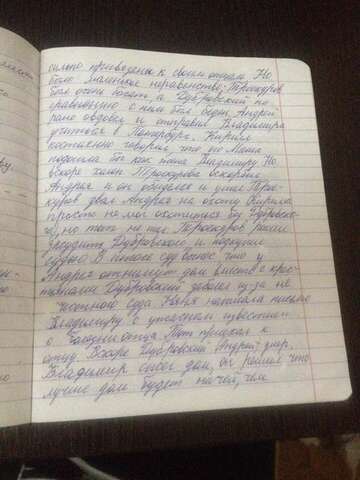 сильно приведены к своим отцам Но
было маленькое неравенство. Троекуров
был очень богат а Дубровский по
сравнению с ним был беден. Андрей
рано овдовел и отправил Владимира
учиться в Петербург. Кирилл
постоянно говорил, что но Маша
подошла бы как пара Владимиру Но
вскоре холоп Троекурова оскорбил
Андрея и он обиделся и ушел Трое-
куров звал Андрея на охоту Кирила
просто не мог охотиться без Дубровско-
го, но тот не шел Троекуров решил
Дубровского и подкупил
судью В итоге суд вынес что у
Андрея отнимут дом вместе с крес-
тьянами Дубровский заболел из за не
честного суда Няня написала письмо
Владимиру с ужасным известием
о болезни отца Тот приехал к
отцу. Вскоре Дубровский Андрей умер.
Владимир сжег дом, он решил что
лучше дом будет ничей, чем